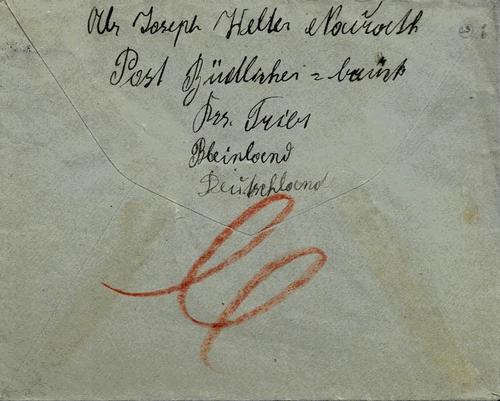 Abs Joseph Naurath
Post Büdlicher = brück
Krs. Trier
Rheinland
Deutschland